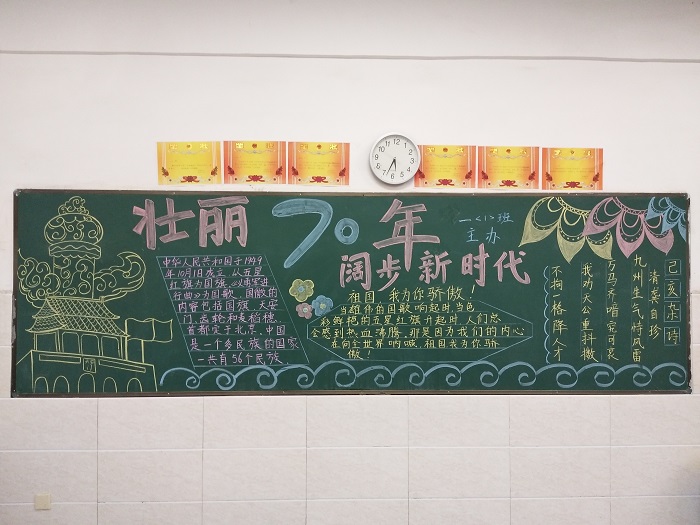 壮丽70年
一<1>班
主办
阔步新时代
中华人民共和国于1949
年10月1日成立,以五星
红旗为国旗,《义勇军进
行曲》为国歌,国徽的
内容包括国旗、天安
门、齿轮和麦稻穗,
首都定于北京,中国
是一个多民族的国家
一共有56个民族
祖国 我为你骄傲!
当雄伟的国歌响起时,当色
彩鲜艳的五星红旗升起时,人们总
会感到热血沸腾,那是因为我们的内心
在向全世界呐喊,祖国我为你骄
傲!
己亥杂诗
清 龚自珍
九州生气恃风雷
万马齐喑究可哀
我劝天公重抖擞
不拘一格降人才